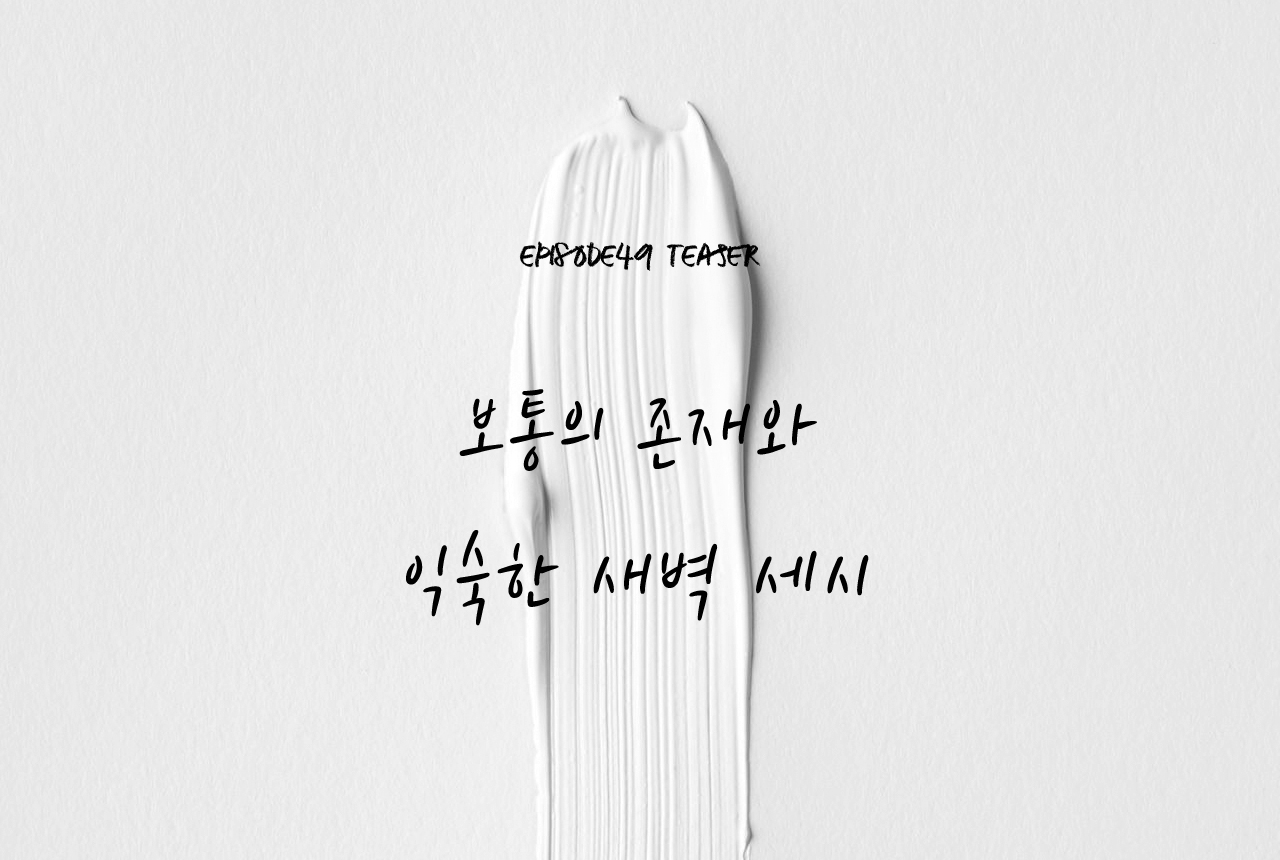 EPISODE49 TEASER
보통의 존재와
익숙한 새벽 세시